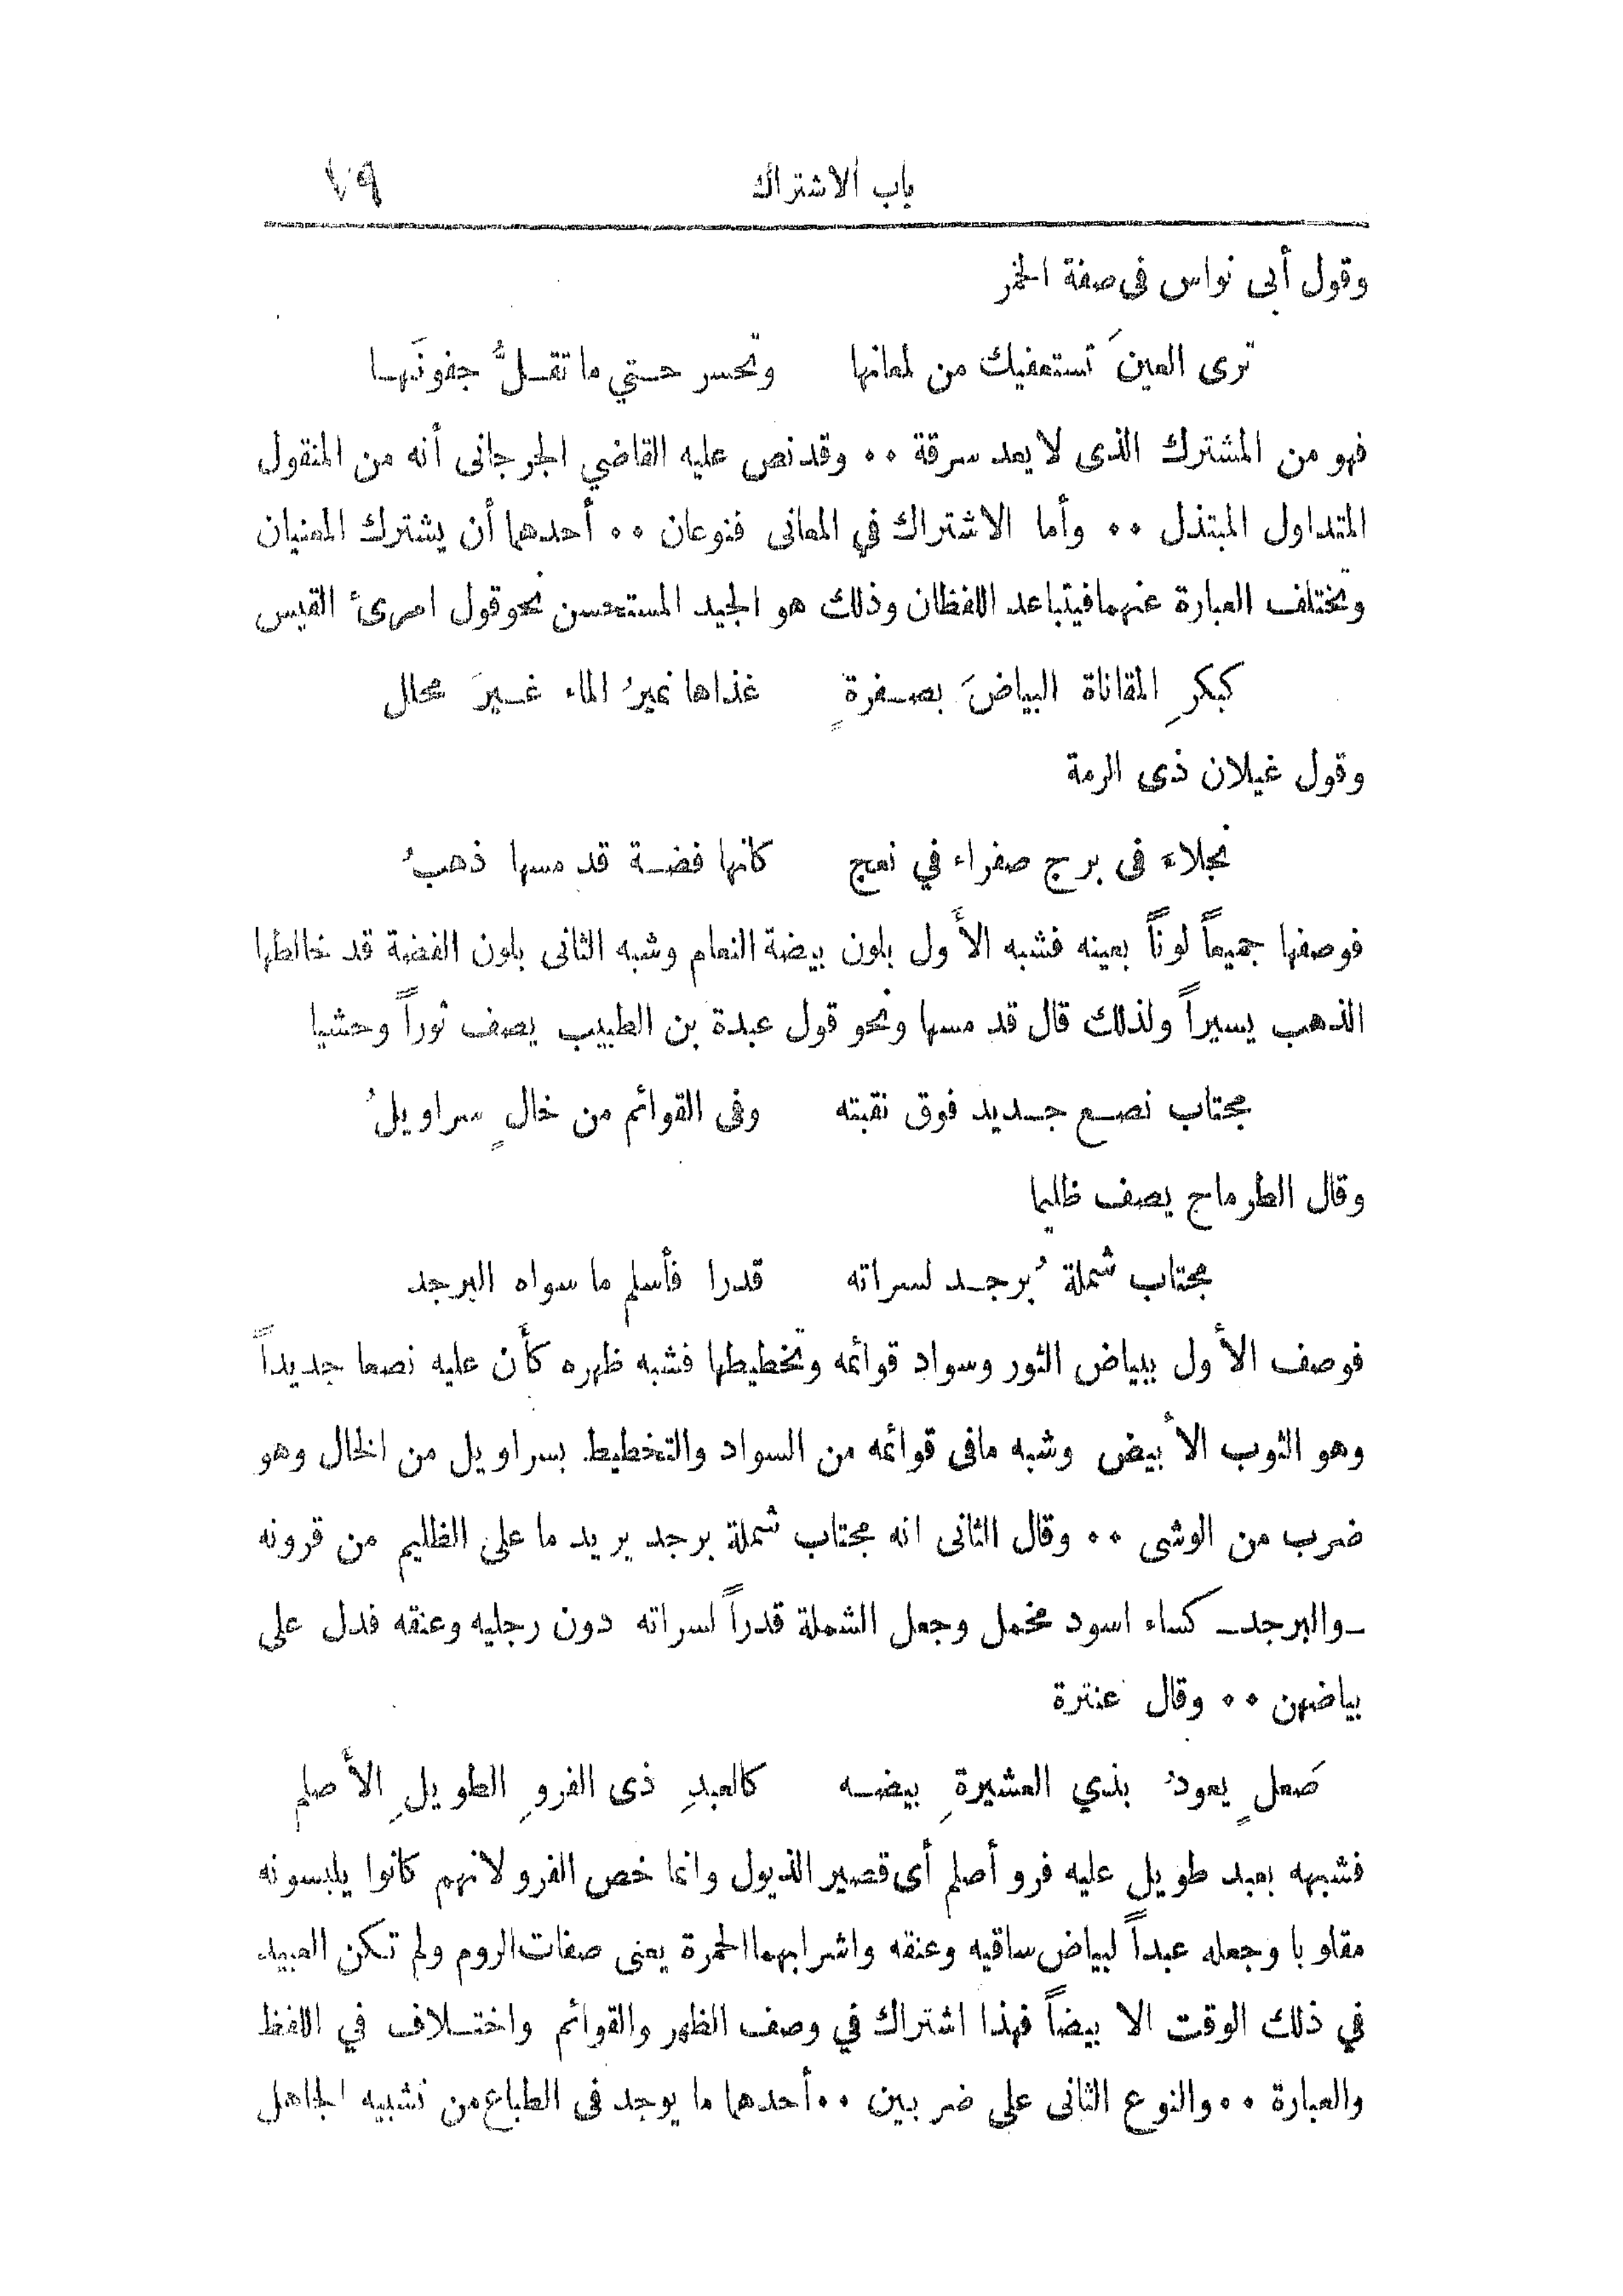 باب الاشتراك ٧٩
وقول أبى نواس فى صفة الخمر
ترى العينَ تستعفيك من لمعانها وتحسر حتي ما تقلُّ جفونَها
فهو من المشترك الذى لا يعد سرقة ٠٠ وقد نص عليه القاضي الجرجانى أنه من المنقول
المتداول المبتذل ٠٠ وأما الاشتراك في المعانى فنوعان ٠٠ أحدهما أن يشترك المعنيان
وتختلف العبارة عنهما فيتباعد اللفظان وذلك هو الجيد المستحسن نحو قول امرئ القيس
كبكرِ المقاناة البياضَ بصفرةٍ غذاها نميرُ الماء غيرَ محلل
وقول غيلان ذى الرمة
نجلاءَ فى برج صفراء في نعج كانها فضة قد مسها ذهبُ
فوصفها جميعاً لوناً بعينه فشبه الأول بلون بيضة النعام وشبه الثانى بلون الفضة قد خالطها
الذهب يسيراً ولذلك قال قد مسها ونحو قول عبدة بن الطبيب يصف ثوراً وحشيا
مجتاب نصع جديد فوق نقبته وفى القوائم من خالٍ سراويلُ
وقال الطرماح يصف ظليما
مجتاب شملة بُرجد لسراته قدرا فأسلم ما سواه البرجد
فوصف الأول بياض الثور وسواد قوائمه وتخطيطها فشبه ظهره كأن عليه نصعا جديداً
وهو الثوب الأبيض وشبه مافى قوائمه من السواد والتخطيط بسراويل من الخال وهو
ضرب من الوشى ٠٠ وقال الثانى انه مجتاب شملة برجد يريد ما على الظليم من قرونه
ــ والبرجد ــ كساء اسود مخمل وجعل الشملة قدراً لسراته دون رجليه وعنقه فدل على
بياضهن ٠٠ وقال عنترة
صَعلٍ يعودُ بذي العشيرةِ بيضه كالعبدِ ذى الفروِ الطويلِ الأصلم
فشبهه بعبد طويل عليه فرو أصلم أى قصير الذيول وانما خص الفرو لانهم كانوا يلبسونه
مقلوبا وجعله عبداً لبياض ساقيه وعنقه واشرابهما الحمرة يعنى صفات الروم ولم تكن العبيد
في ذلك الوقت الا بيضاً فهذا اشتراك في وصف الظهر والقوائم واختلاف في اللفظ
والعبارة ٠٠ والنوع الثانى على ضربين ٠٠ أحدهما ما يوجد فى الطباع من تشبيه الجاهل